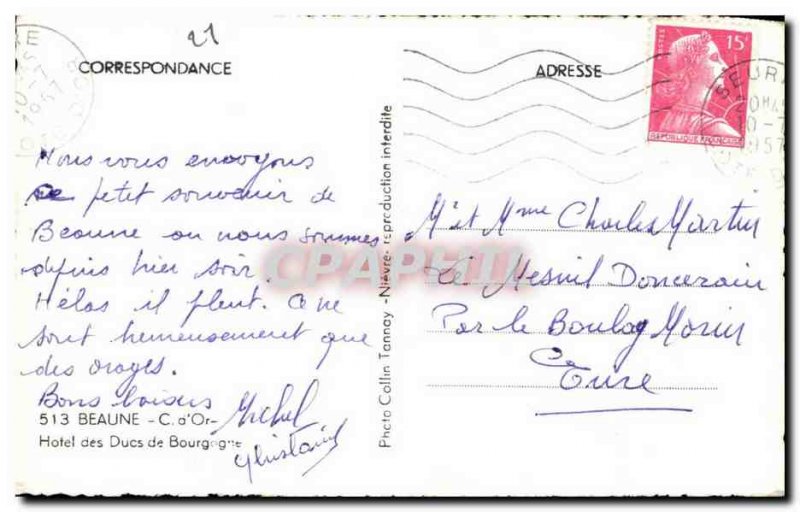 21
CORRESPONDANCE
Nous vous envoyons
ce petit souvenir de
Beaune ou nous sommes
depuis hier soir.
Hélas il pleut. Ce ne
sont heureusement que
des orages.
Bons baisers
Michel
Ghislaine
513 BEAUNE - C. d'Or-
Hotel des Ducs de Bourgogne
Photo Collin Tannay - Nièvre - reproduction interdite
ADRESSE
15F
POSTES
REPUBLIQUE FRANÇAISE
SEURRE
10-7
1957
Mr et Mme Charles Martin
Le Mesnil Doncerain
Par le Boulay Morin
Eure
CPAPHIL